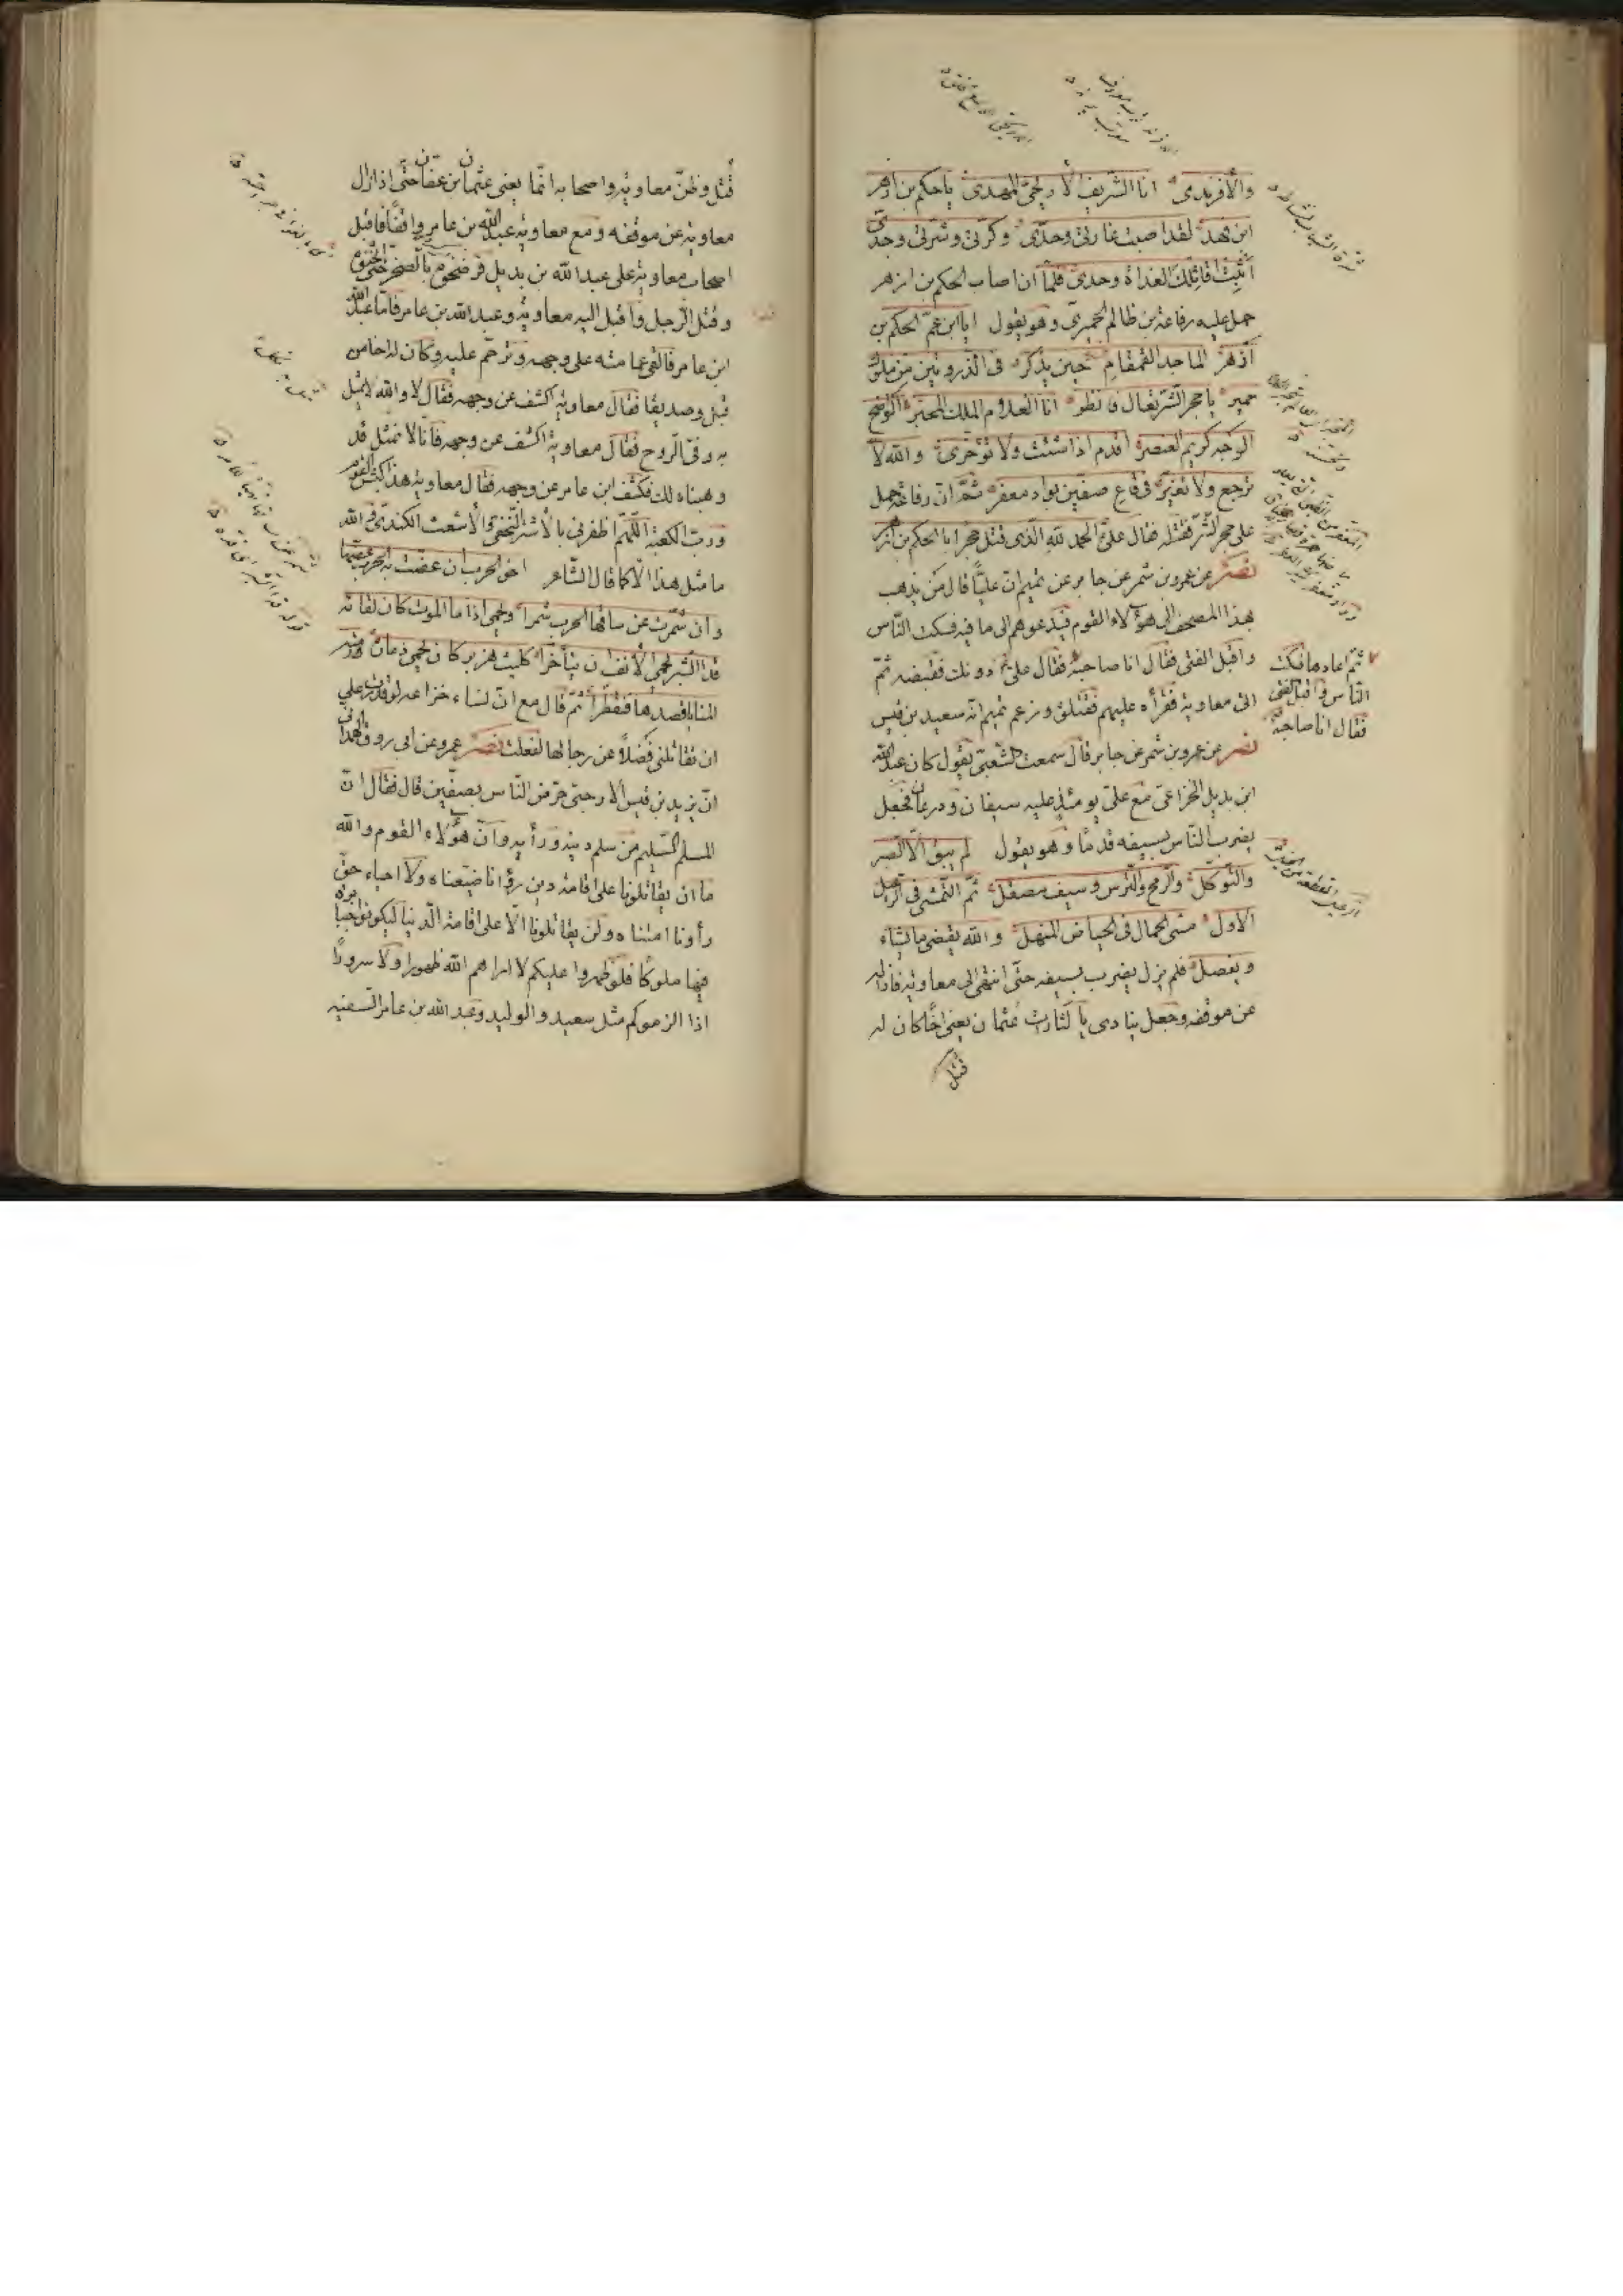 والأفرندى انا الشريف الارحبى المهدى يا حكم بن ازهر
ابن فهد لقد اصبت غارتى وحدى وكرتى وشرتى وجدى
اثبت اقاتلك الغداة وحدى فلما ان اصاب الحكم بن ازهر
حمل عليه رفاعة بن ظالم الحميرى وهو يقول انا ابن عم الحكم بن
ازهر الماجد القمقام حين يذكر فى الذروتين من ملوك
حمير يا حجر الشر تعال فانظر انا الغلام الملك المحبر الواضح
الوجه كريم العنصر اقدم اذا شئت ولا تؤخرى والله لا
ترجع ولا تغبر فى قاع صفين بواد معفر ثم ان رفاعة حمل
على حجر الشر فقتله فقال على الحمد لله الذى قتل حجرا بالحكم بن ازهر
نصر عن عمرو بن شمر عن جابر عن تميم ان عليا قال من يذهب
بهذا المصحف الى هؤلاء القوم فيدعوهم الى ما فيه فسكت الناس
واقبل الفتى فقال انا صاحبه فقال على دونك فقبضه ثم
اتى معاوية فقرأه عليهم فقتلوه وزعم تميم انه سعيد بن قيس
نصر عن عمرو بن شمر عن جابر قال سمعت الشعبى يقول كان عبد الله
ابن بديل الخزاعى مع على يومئذ عليه سيفان ودرعان فجعل
يضرب الناس بسيفه قدما وهو يقول لم يبق الا الصبر
والتوكل والرمح والترس وسيف مصقل ثم التمشى فى الرعيل
الاول مشى الجمال فى الحياض المنهل والله يقضى ما يشاء
ويفصل فلم يزل يضرب بسيفه حتى انتهى الى معاوية فازاله
عن موقفه وجعل ينادى يا لثارات عثمان يعنى اخا كان له
قتل
ثم اعادها فسكت
الناس واقبل الفتى
فقال انا صاحبه
قتل وظن معاوية واصحابه انما يعنى عثمان بن عفان حتى اذ ازال
معاوية عن موقفه ومع معاوية عبد الله بن عامر واقفا فاقبل
اصحاب معاوية على عبد الله بن بديل فرضخوه بالصخر حتى
وقتل الرجل واقبل اليه معاوية وعبد الله بن عامر فاما عبد الله
ابن عامر فالقى عمامته على وجهه وترحم عليه وكان له اخا من
قبل وصديقا فقال معاوية اكشف عن وجهه فقال لا والله لا يمثل
به وفى الروح فقال معاوية اكشف عن وجهه فانا لا نمثل قد
وهبناه لك فكشف ابن عامر عن وجهه فقال معاوية هذا كبش القوم
ورب الكعبة اللهم اظفرنى بالاشتر النخعى والاشعث الكندى والله
ما مثل هذا الا كما قال الشاعر اخو الحرب ان عضت به الحرب عضها
وان شمرت عن ساقها الحرب شمرا ويحمى اذا ما الموت كان لقائه
قدا الشبر يحمى الانف ان يتأخرا كليث هزبر كان يحمى ذماره رمته
المنايا قصدها فتقطرا ثم قال مع ان نساء خزاعة لو قدرت على
ان تقاتلنى فضلا عن رجالها لفعلت نصر عمرو عن ابى روق الهمدانى
ان يزيد بن قيس الارحبى حرض الناس بصفين قال فقال ان
المسلم السليم من سلم دينه ورأيه وان هؤلاء القوم والله
ما ان يقاتلونا على اقامة دين رأونا ضيعناه ولا احياء حق
رأونا امتناه ولن يقاتلونا الا على اقامة الدنيا ليكونوا جبابرة
فيها ملوكا فلو ظهروا عليكم لا اراهم الله ظهورا ولا سرورا
اذا الزموكم مثل سعيد والوليد وعبد الله بن عامر السفيه